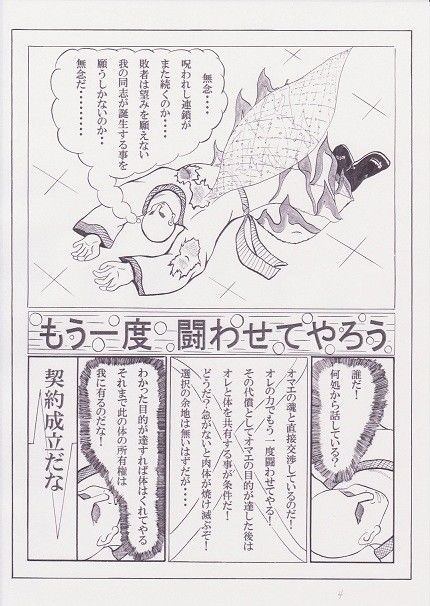 無念・・・・
呪われし連鎖が
また続くのか・・・・
敗者は望みを願えない
我の同志が誕生する事を
願うしかないのか・・
無念だ・・・・・・・・・
もう一度 闘わせてやろう
誰だ！
何処から話している？
オマエの魂と直接交渉しているのだ！
オレの力でもう一度闘わせてやる！
その代償としてオマエの目的が達した後は
オレと体を共有する事が条件だ！
どうだ？急がないと肉体が焼け滅ぶぞ！
選択の余地は無いはずだが・・・・
わかった目的が達すれば体はくれてやる
それまで此の体の所有権は
我に有るのだな！
契約成立だな
4